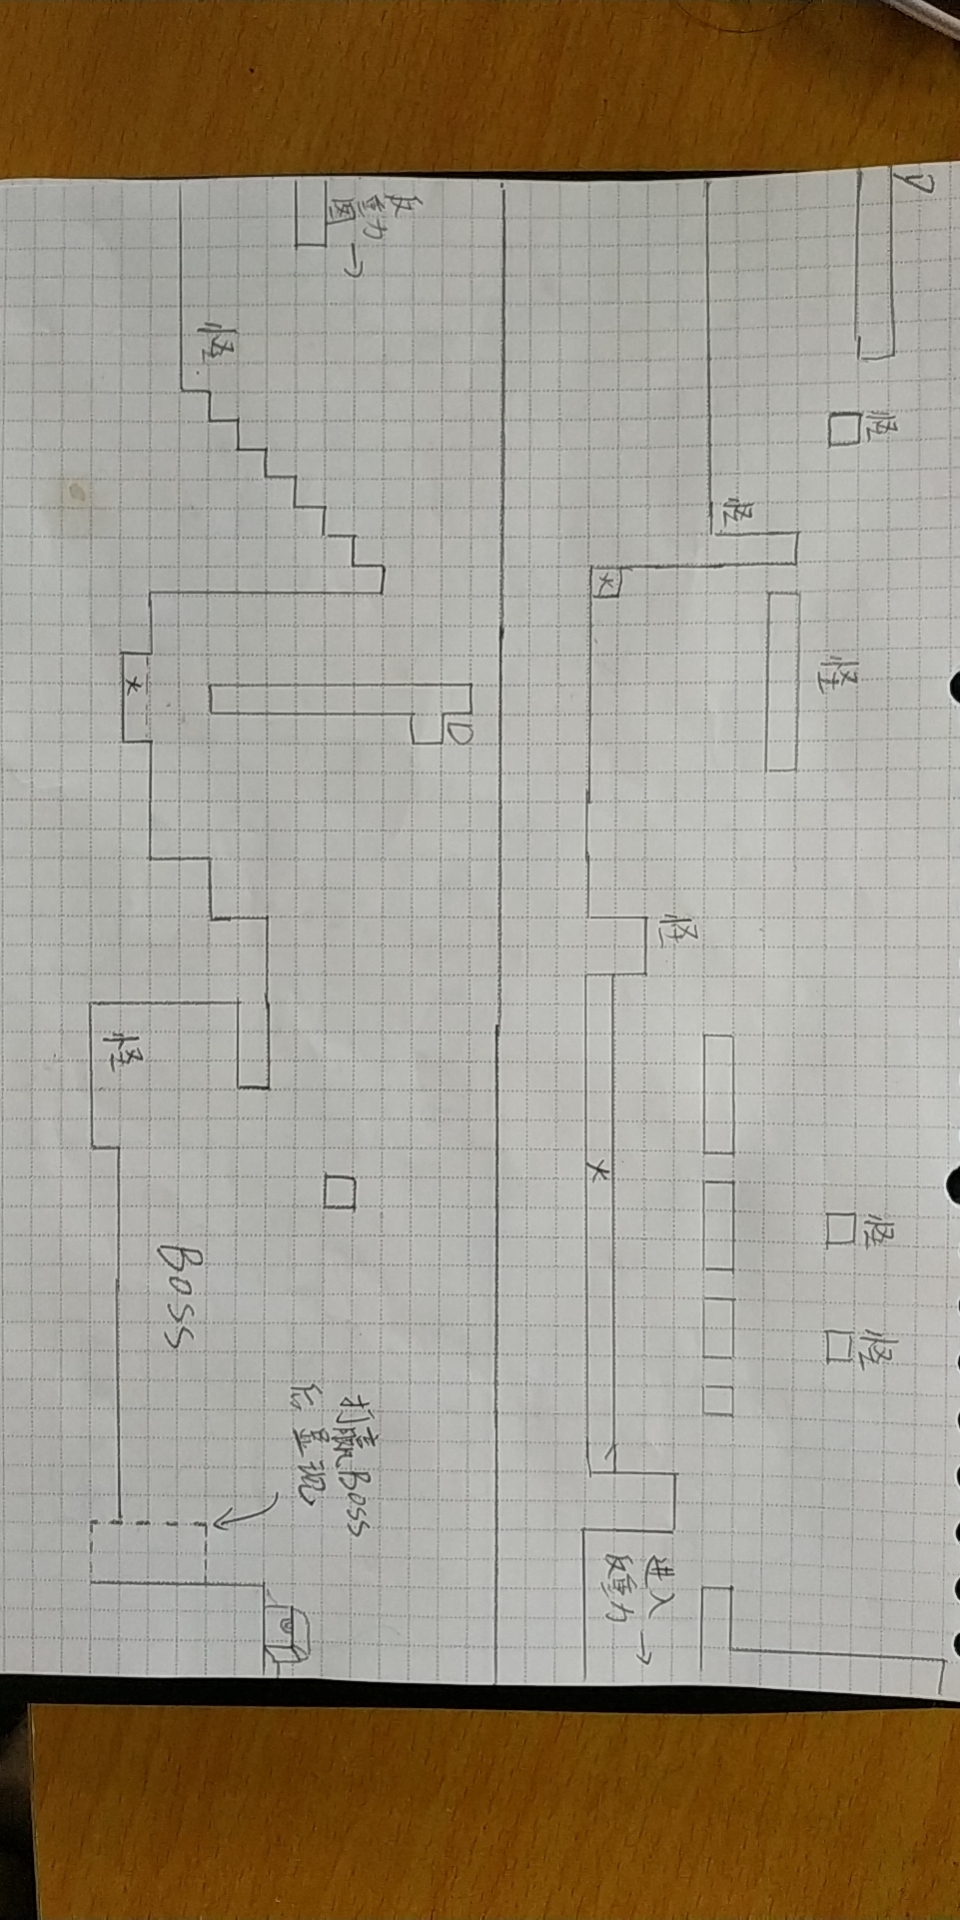 D
怪
怪
怪
怪
怪
怪
进入
反重力 →
反
重力 →
怪
D
怪
Boss
打赢Boss
后显现